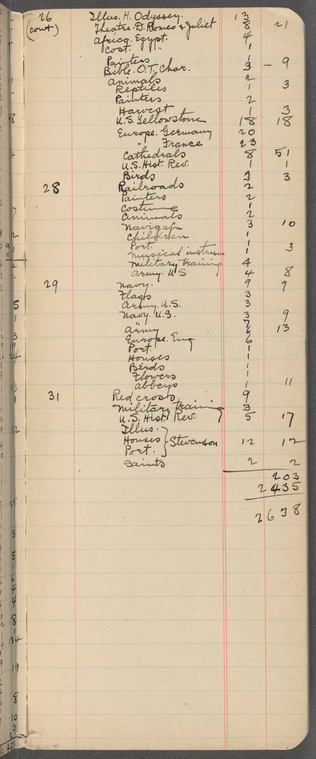 26 Illus. H. Odyssey. 13
(cont) Theatre. D. Romeo & Juliet 8 21
Africa. Egypt. 4
Cost. " 1
Painters 1
Bible. O.T. Char. 3 - 9
Animals 2
Reptiles 1 3
Painters 2
Harvest 1 3
U.S. Yellowstone 18 18
Europe. Germany 20
" France 23
Cathedrals 8 51
U.S. Hist. Rev. 1 1
Birds 3 3
28 Railroads 2
Painters 2
Costume 1
Animals 2
Navigat 3 10
Children 1
Port. 1
Musical instrum 1 3
Military training 4
Army. U.S 4 8
29 Navy. 9 9
Flags 3
Army. U.S. 3
Navy. U.S. 3 9
Army 7
Europe. Eng 6 13
Port. 1
Houses 1
Birds 1
Flowers 1
Abbeys 1 11
31 Red cross 9
Military training 3
U.S. Hist. Rev. 5 17
Illus.
Houses } Stevenson 12 12
Port.
Saints 2 2
203
2435
2638